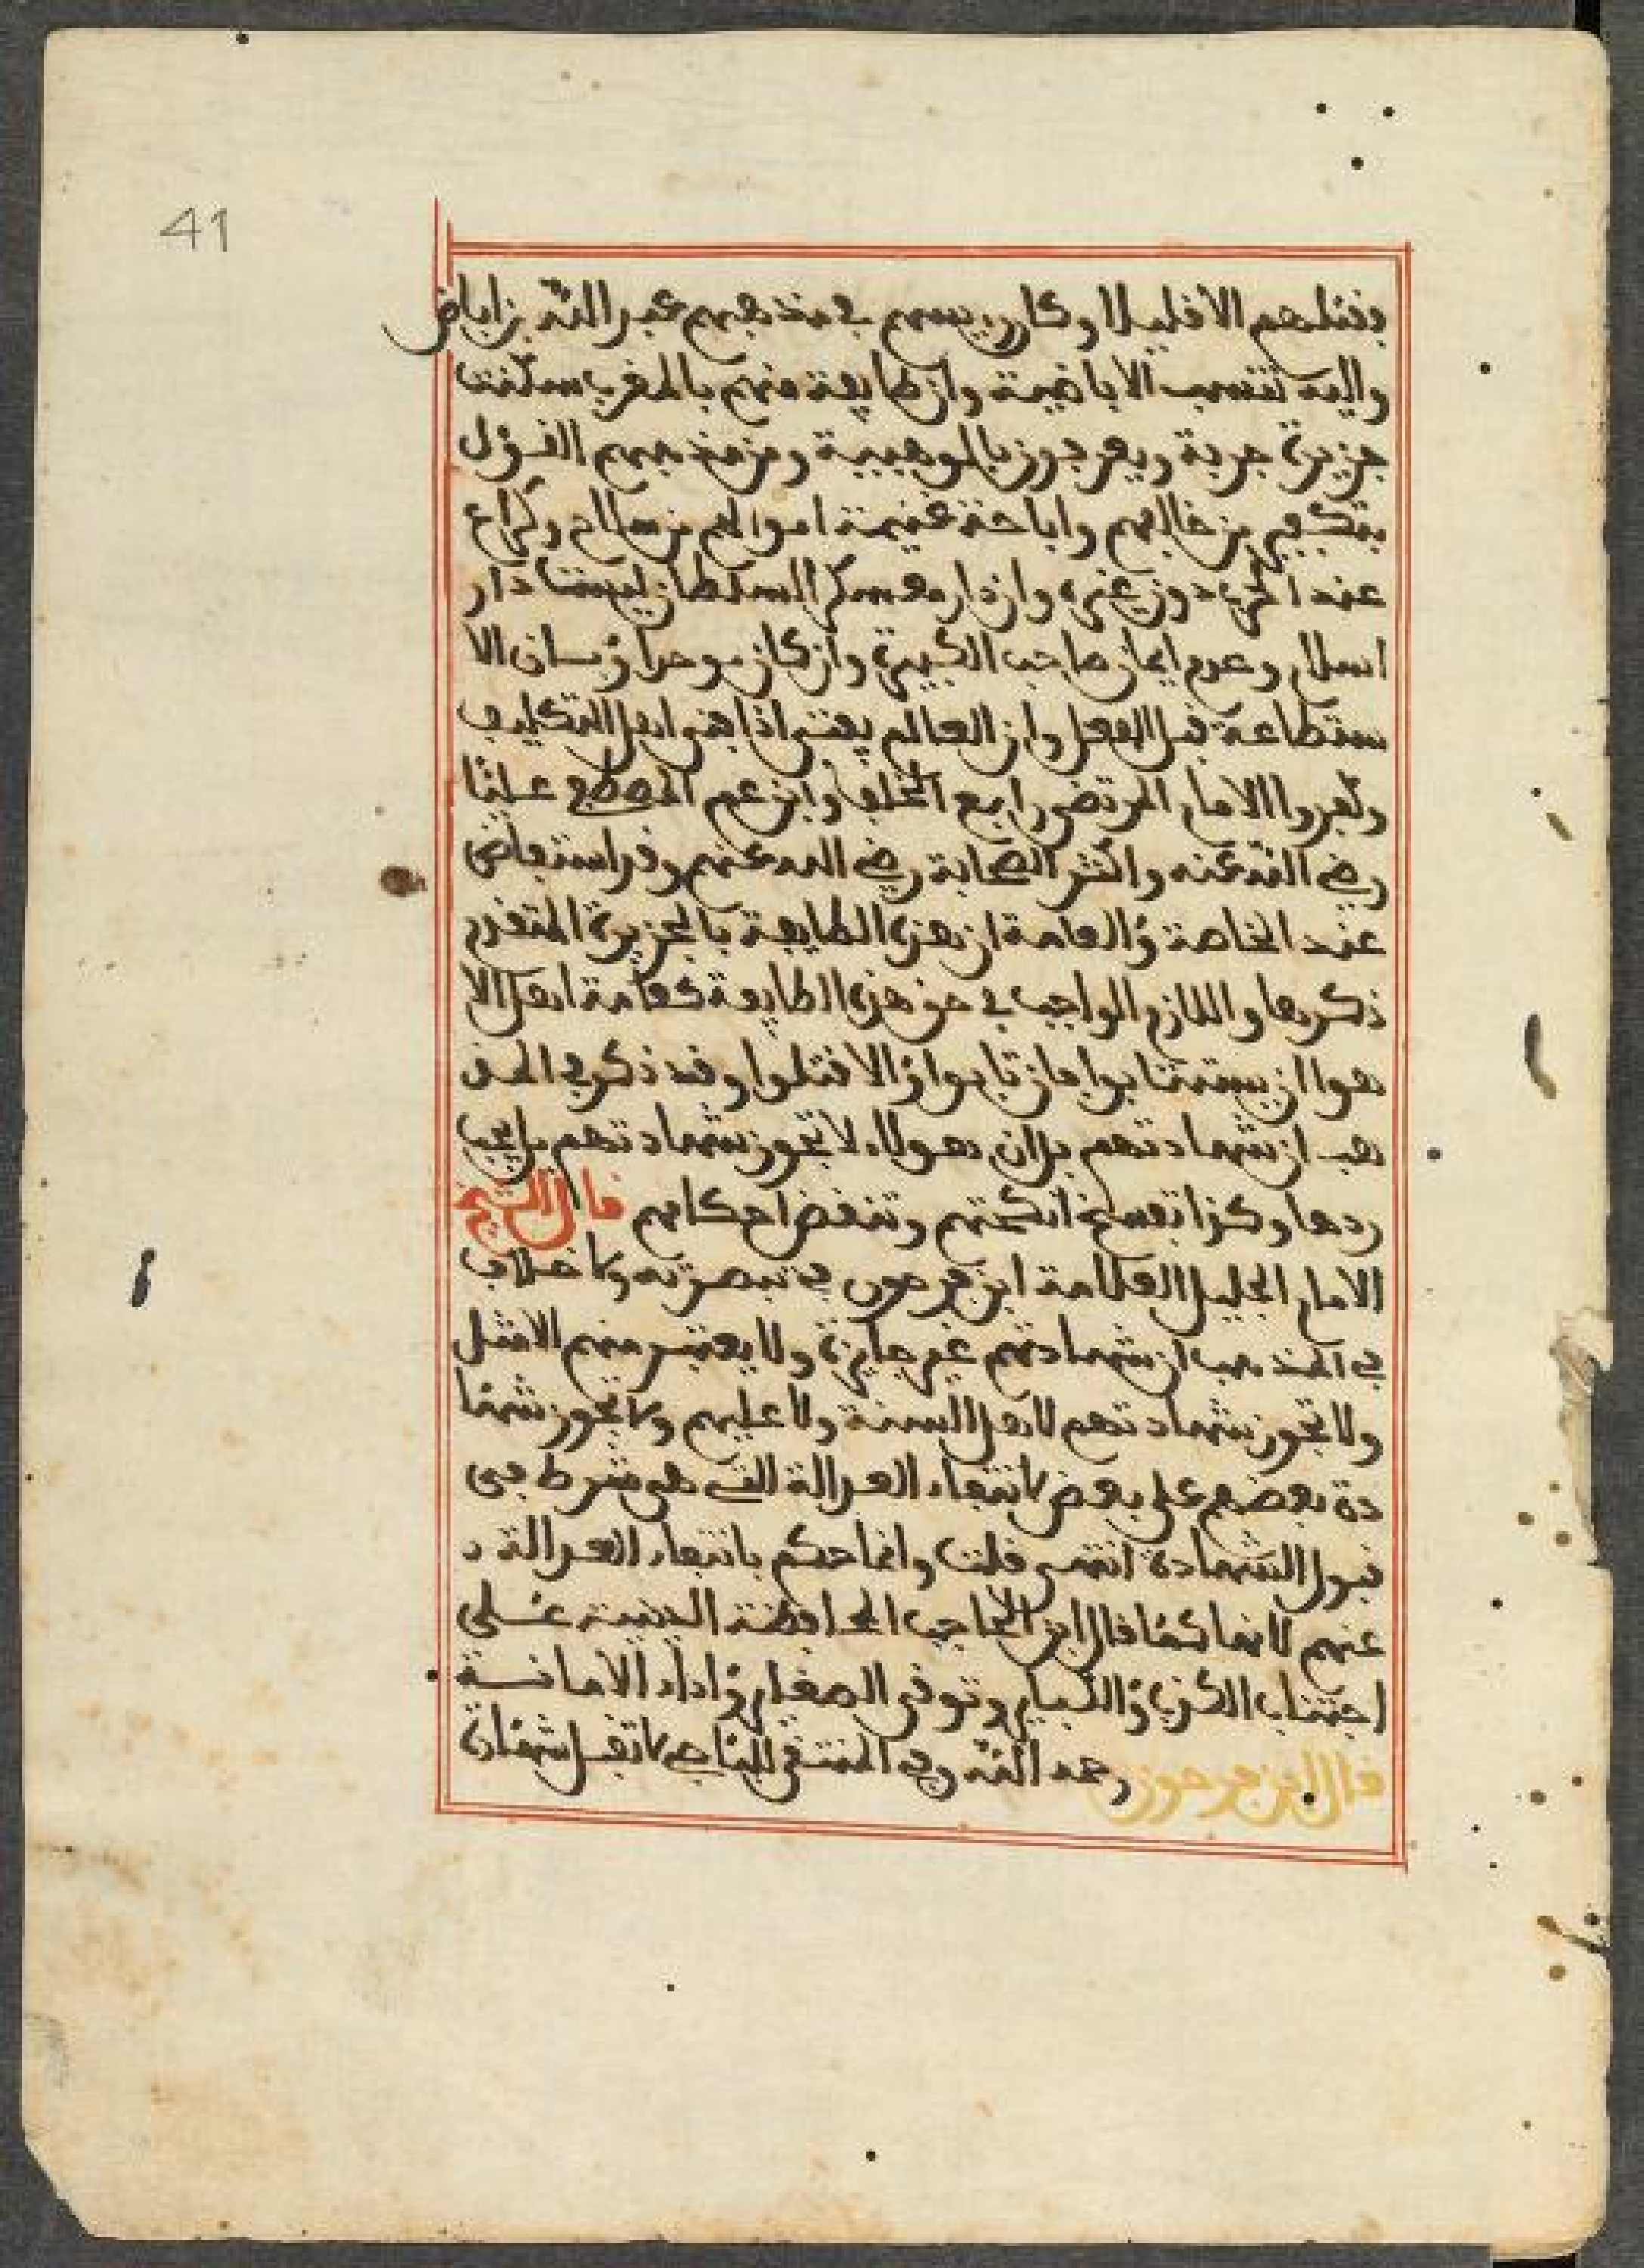 41
فقتلهم الا قليلا وكان رييسهم في مذهبهم عبد الله بن اباض
واليه تنتسب الاباضية وان طايفة منهم بالمغرب سكنت
جزيرة جربة ويعرفون بالوهبية ومن مذهبهم القول
بتكفير من خالفهم واباحة غنيمة اموالهم من سلاح وكراع
عند الحرب دون غيره وان دار معسكر السلطان ليست دار
اسلام وعدم ايمان صاحب الكبيرة وان كان موحدا وسان الا
ستطاعة قبل الفعل وان العالم يفنى اذا فني اهل التكليف
وكفروا الامام المرتضى رابع الخلفا وابن عم المصطفى عليا
رضي الله عنه واكثر الصحابة رضي الله عنهم وقد استفاض
عند الخاصة والعامة ان هذه الطايفة بالجزيرة المتقدم
ذكرها واللازم الواجب في حق هذه الطايفة كعامة اهل الا
هوا ان يستتابوا فان تابوا والا قتلوا وقد ذكر في المذ
هب ان شهادتهم بل ان هولاء لا تجوز شهادتهم بل يجب
ردها وكذا تفسخ انكحتهم وتنقض احكامهم قال الشيخ
الامام الجليل العلامة ابن فرحون في تبصرته ولا خلاف
في المذهب ان شهادتهم غير جايزة ولا يعتبر منهم الامثل
ولا تجوز شهادتهم لاهل السنة ولا عليهم ولا تجوز شها
دة بعضهم على بعض لانتفاء العدالة التي هي شرط في
قبول الشهادة انتهى قلت وانما حكم بانتفاء العدالة
عنهم لانها كما قال ابن الحاجب المحافظة الدينية على
اجتناب الكذب والكباير وتوقي الصغاير واداء الامانة
قال ابن فرحون رحمه الله وفي المنتقى للباجي لا تقبل شهادة